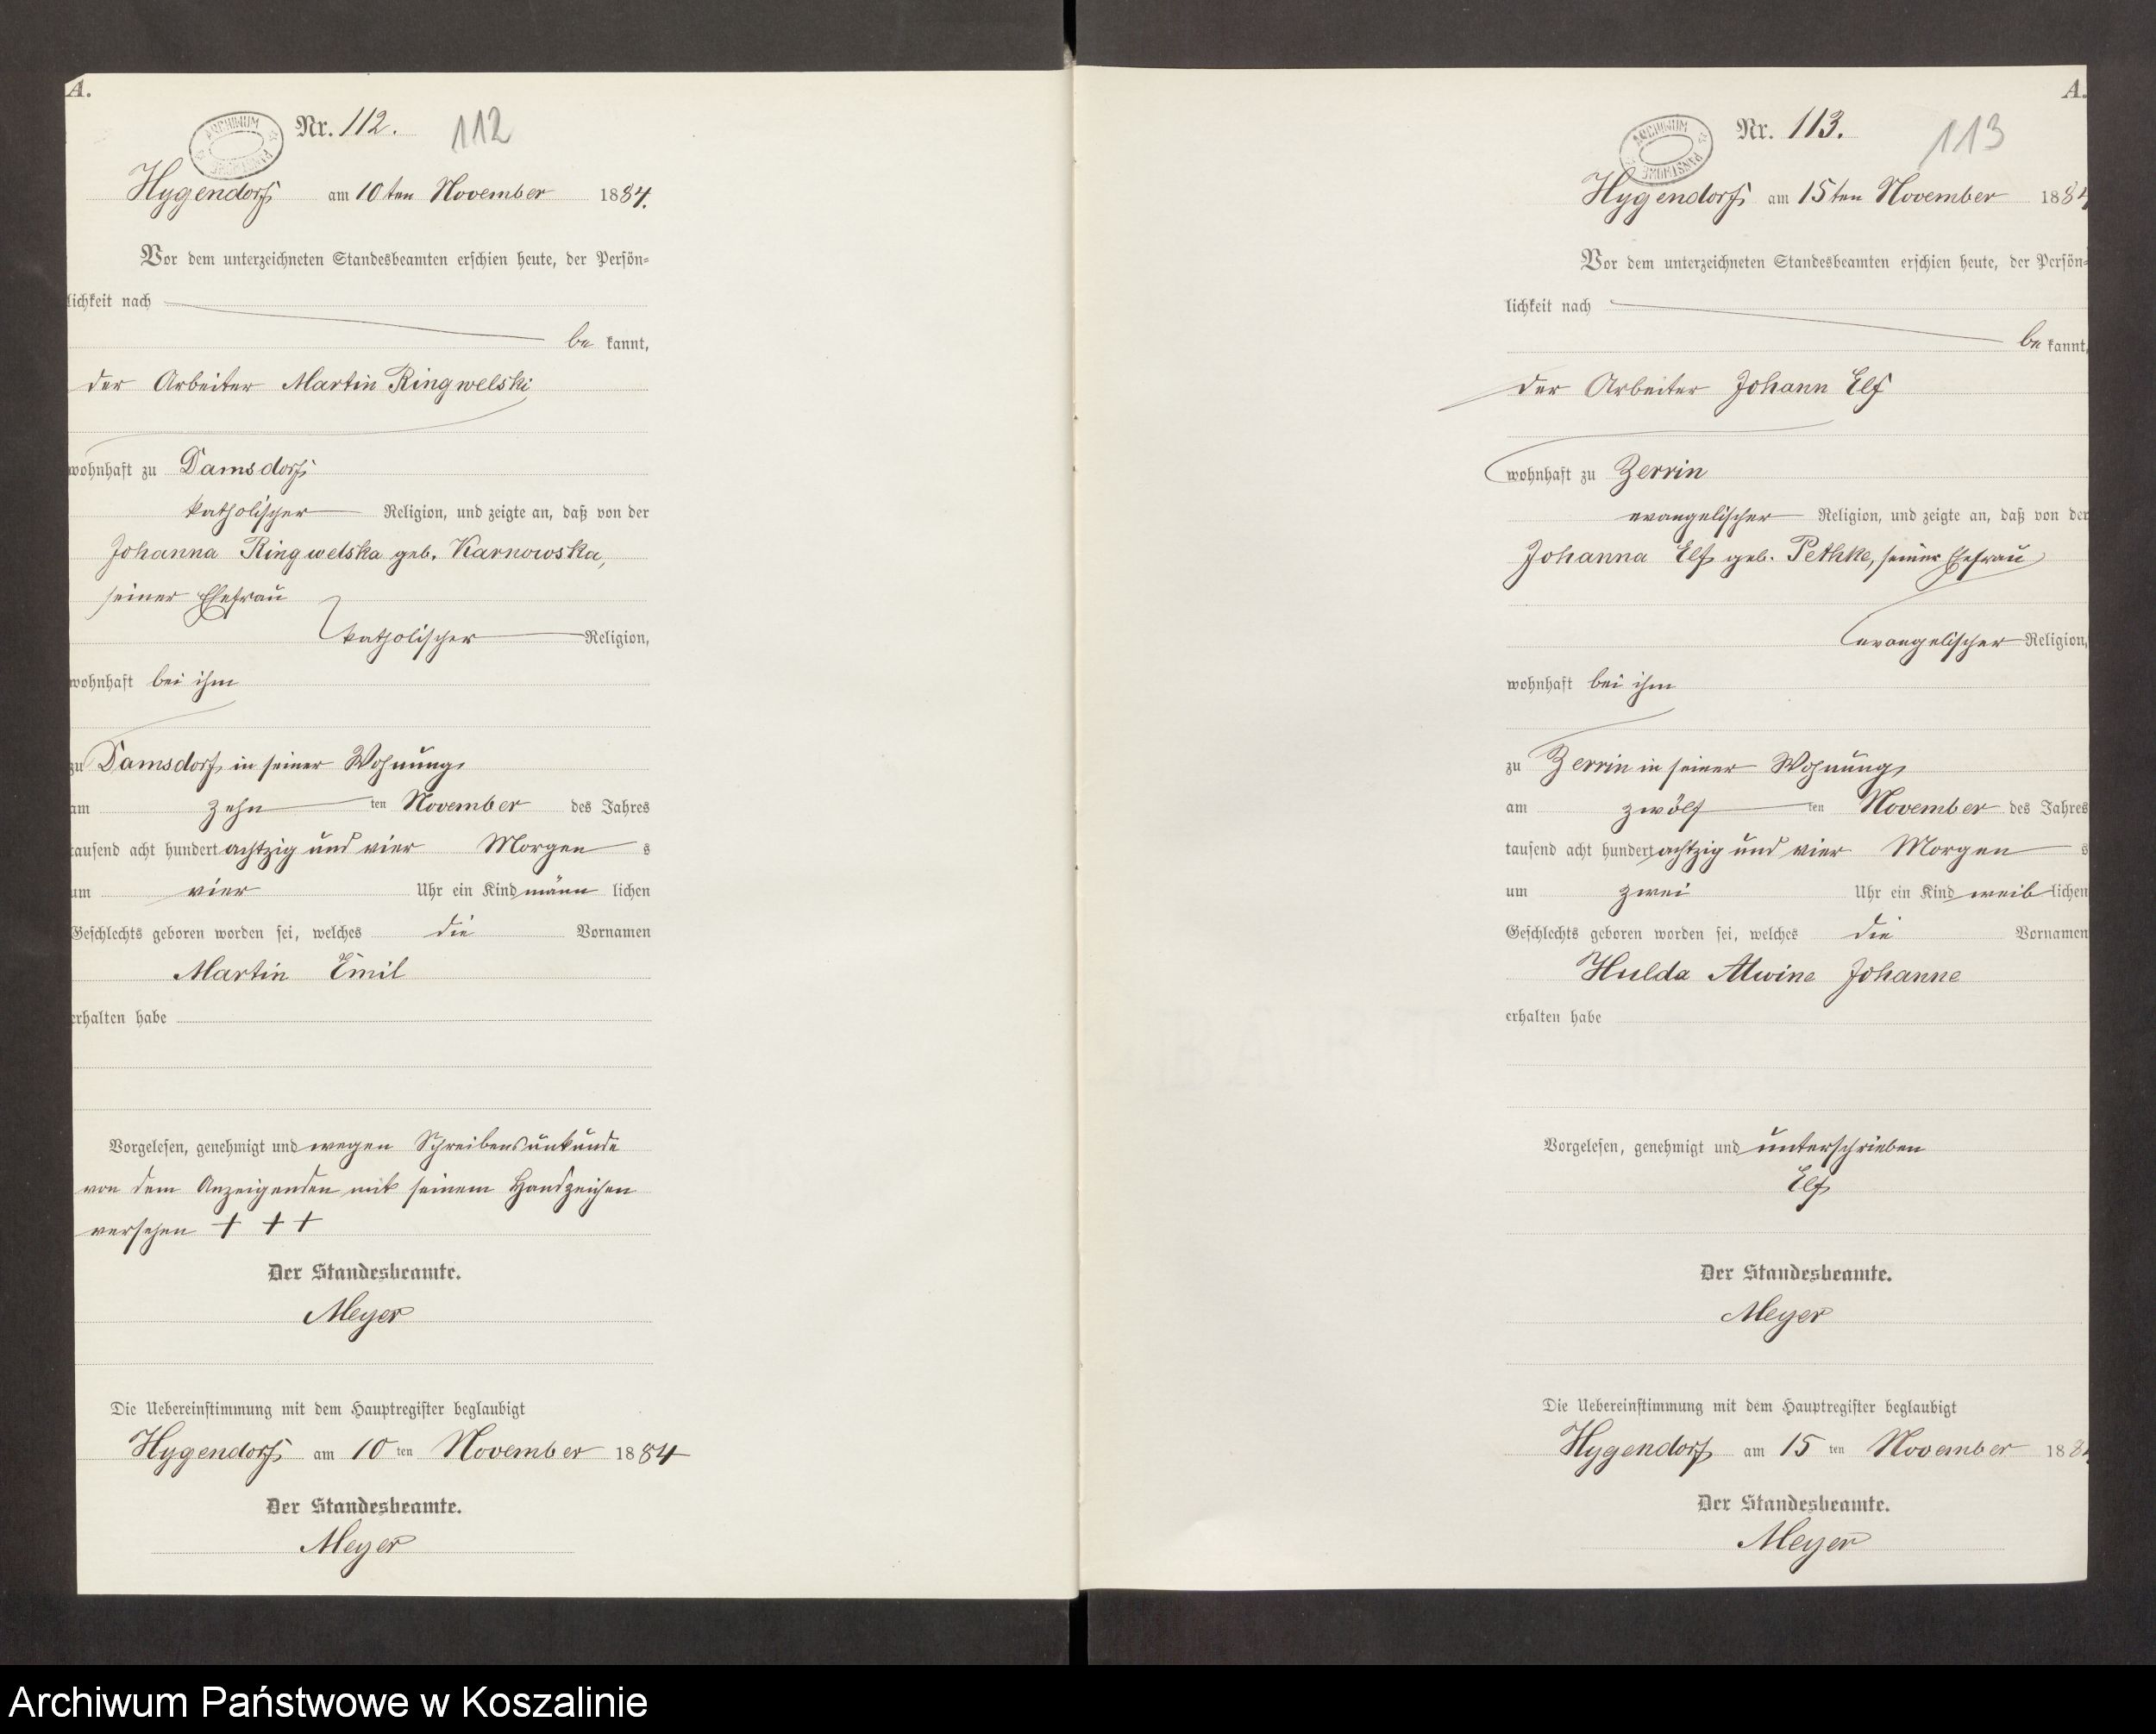 A.
ARCHIWUM PAŃSTWOWE
Nr. 112.
112
Hygendorf am 10ten November 1884.
Vor dem unterzeichneten Standesbeamten erschien heute, der Persön-
lichkeit nach
be kannt,
der Arbeiter Martin Ringwelski
wohnhaft zu Damsdorf
katholischer Religion, und zeigte an, daß von der
Johanna Ringwelska geb. Karnowska,
seiner Ehefrau
katholischer Religion,
wohnhaft bei ihm
zu Damsdorf in seiner Wohnung
am zehn ten November des Jahres
tausend acht hundert achtzig und vier Morgen s
um vier Uhr ein Kind männ lichen
Geschlechts geboren worden sei, welches die Vornamen
Martin Emil
erhalten habe
Vorgelesen, genehmigt und wegen Schreibensunkunde
von dem Anzeigenden mit seinem Handzeichen
versehen + + +
Der Standesbeamte.
Meyer
Die Uebereinstimmung mit dem Hauptregister beglaubigt
Hygendorf am 10 ten November 1884
Der Standesbeamte.
Meyer
A.
ARCHIWUM PAŃSTWOWE
Nr. 113.
113
Hygendorf am 15ten November 1884
Vor dem unterzeichneten Standesbeamten erschien heute, der Persön-
lichkeit nach
be kannt,
der Arbeiter Johann Elf
wohnhaft zu Zerrin
evangelischer Religion, und zeigte an, daß von der
Johanna Elf geb. Pethke, seiner Ehefrau
evangelischer Religion,
wohnhaft bei ihm
zu Zerrin in seiner Wohnung
am zwölf ten November des Jahres
tausend acht hundert achtzig und vier Morgen s
um zwei Uhr ein Kind weib lichen
Geschlechts geboren worden sei, welches die Vornamen
Hulda Alwine Johanne
erhalten habe
Vorgelesen, genehmigt und unterschrieben
Elf
Der Standesbeamte.
Meyer
Die Uebereinstimmung mit dem Hauptregister beglaubigt
Hygendorf am 15 ten November 188
Der Standesbeamte.
Meyer
Archiwum Państwowe w Koszalinie